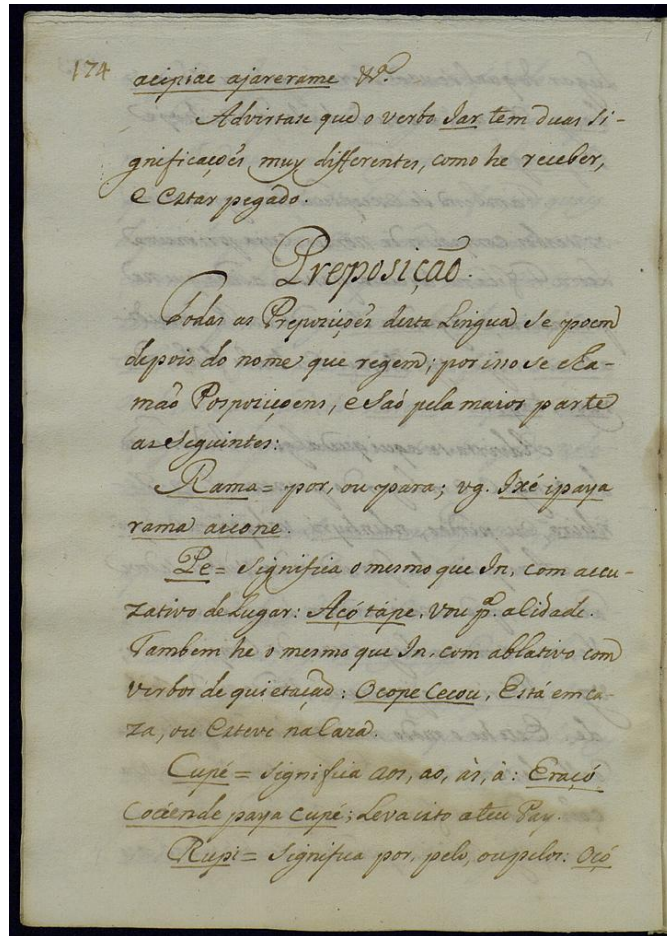 174
acipiae ajarerame &ª.
Advirtase que o verbo Jar tem duas si-
gnificaçoẽs muy differentes, como he receber,
e Estar pegado.
Preposiçaõ.
Todas as Prepoziçoẽs desta Lingua se poem
depois do nome que regem; por isso se cha-
maõ Pospoziçoens, e saõ pela maior parte
as seguintes:
Rama = por, ou para; vg. Ixé ipaya
rama aicone.
Pe = significa o mesmo que In, com accu-
zativo de Lugar: Açó tápe, vou pª. a Cidade.
Tambem he o mesmo que In, com ablativo com
verbos de quietaçaõ: Ocope Cecou, Está em ca-
za, ou Esteve na Caza.
Cupé = significa aos, ao, às, à: Eraçó
Coáe nde paya cupé; Leva isto a teu Pay.
Rupi = significa por, pelo, ou pelos: Oçó